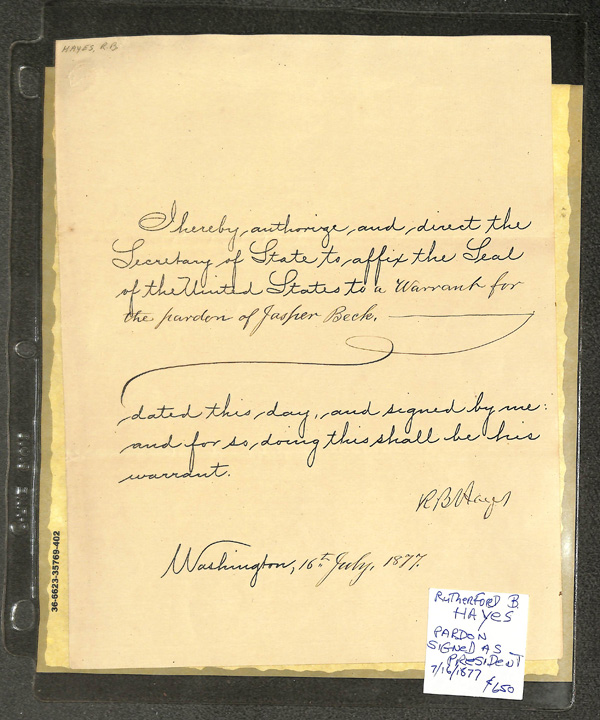 HAYES, R.B
I hereby authorize and direct the
Secretary of State to affix the Seal
of the United States to a Warrant for
the pardon of Jasper Beck.
dated this day, and signed by me:
and for so doing this shall be his
warrant.
R B Hayes
Washington, 16th July, 1877.
36-6623-35769-402
RUTHERFORD B.
HAYES
PARDON
SIGNED AS
PRESIDENT
7/16/1877
$650